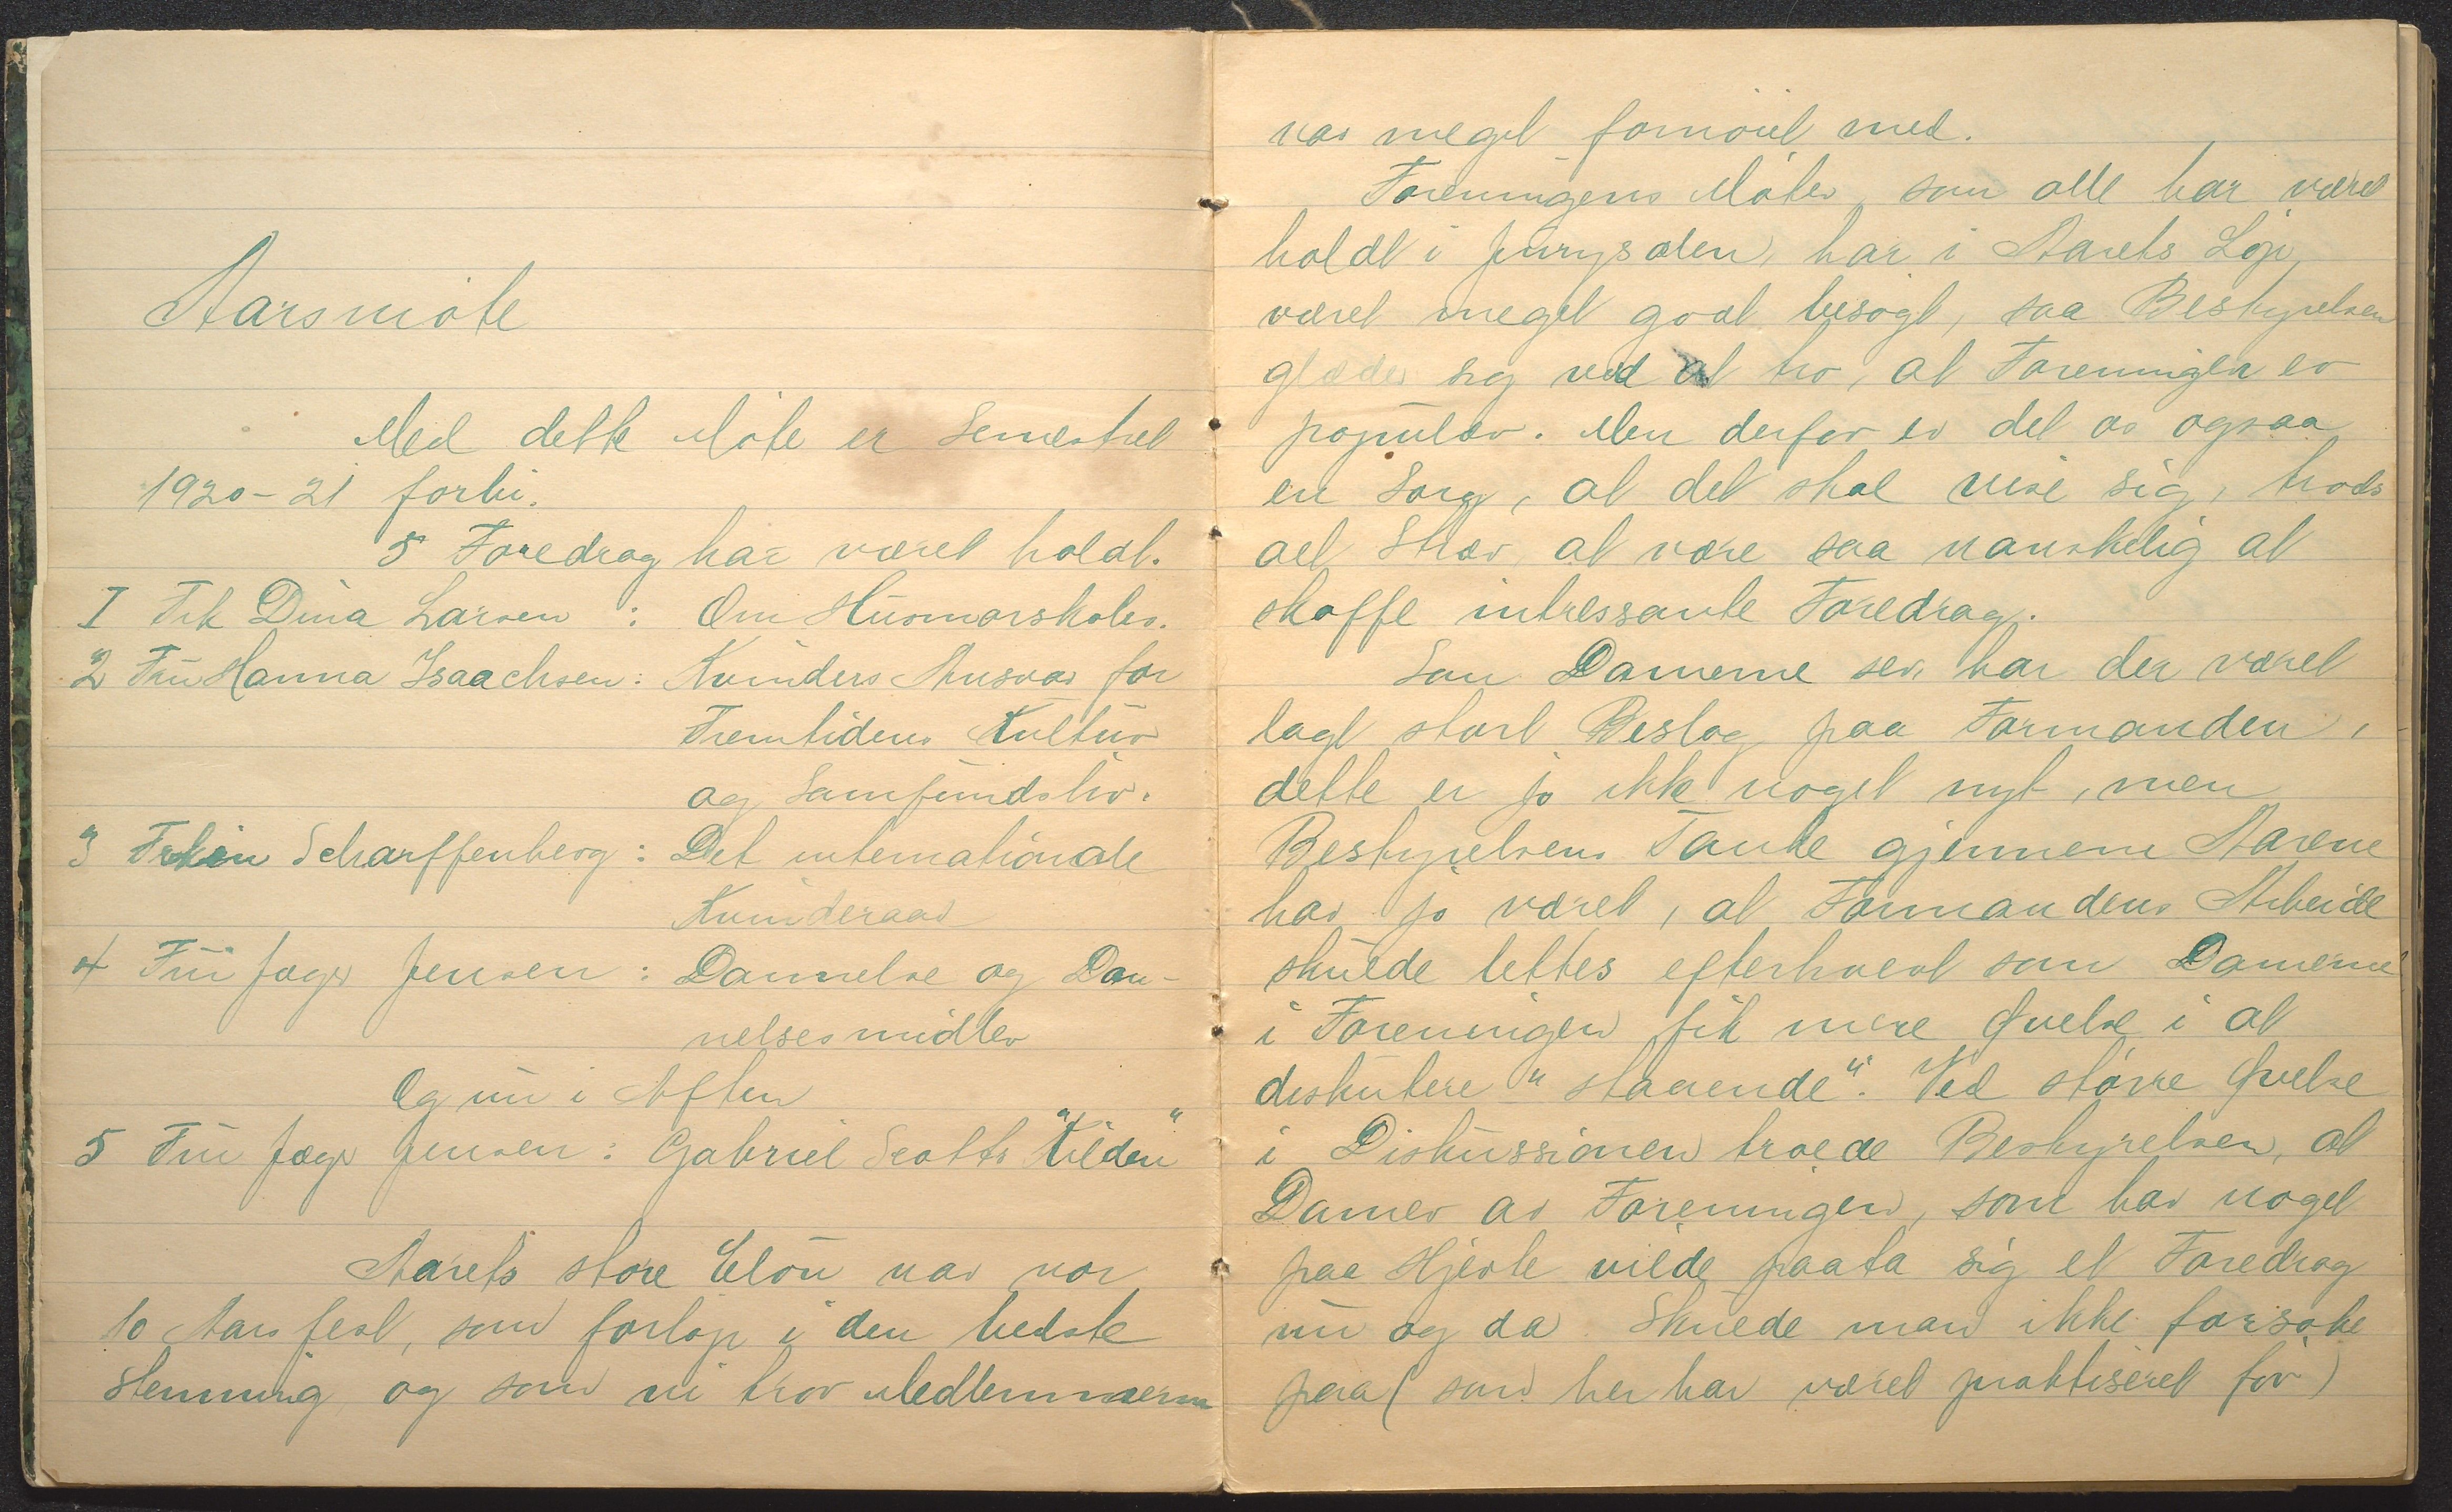 Aarsmöte
Med dette Möte er Semestret
1920-21 forbi.
5 Foredrag har været holdt.
I Frk Dina Larsen : Om Husmorskoler.
2 Fru Hanna Isaachsen : Kvinders Ansvar for
Fremtidens Kultur
og Samfundsliv.
3 Frkin Scharffenberg : Det internationale
Kvinderaad
4 Fru Jæger Jensen : Dannelse og Dan-
nelsesmidler
Og nu i Aften
5 Fru Jæger Jensen : Gabriel Scotts "Kilden"
Aarets store Clou var vor
10 Aars fest, som forløp i den bedste
Stemning og som vi tror Medlemmerne
var meget fornöiet med.
Foreningens Möter, som alle har været
holdt i Jurysalen, har i Aarets Löp
været meget godt besögt, saa Bestyrelsen
glæder sig ved at tro, at Foreningen er
populær. Men derfor er det os ogsaa
en Sorg, at det skal vise sig, trods
alt Stræv, at være saa vanskelig at
skaffe intressante Foredrag.
Som Damerne ser, har der været
lagt stort Beslag paa Formanden,
dette er jo ikke noget nyt, men
Bestyrelsens Tanke gjennem Aarene
har jo været, at Formandens Arbeide
skulde lettes efterhvert som Damerne
i Foreningen fik mere Øvelse i at
diskutere "staaende". Ved större Øvelse
i Diskussionen troede Bestyrelsen, at
Damer av Foreningen, som har noget
paa Hjerte vilde paata sig et Foredrag
nu og da. Skulde man ikke forsöke
paa (som her har været praktiseret för)